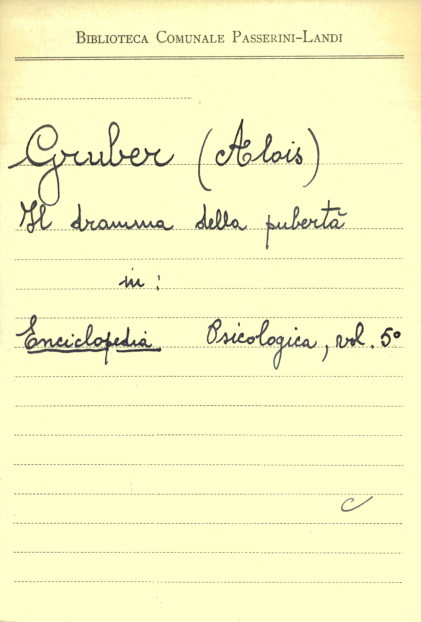 BIBLIOTECA COMUNALE PASSERINI-LANDI
Gruber (Alois)
Il dramma della pubertà
in:
Enciclopedia Psicologica, vol. 5°
C